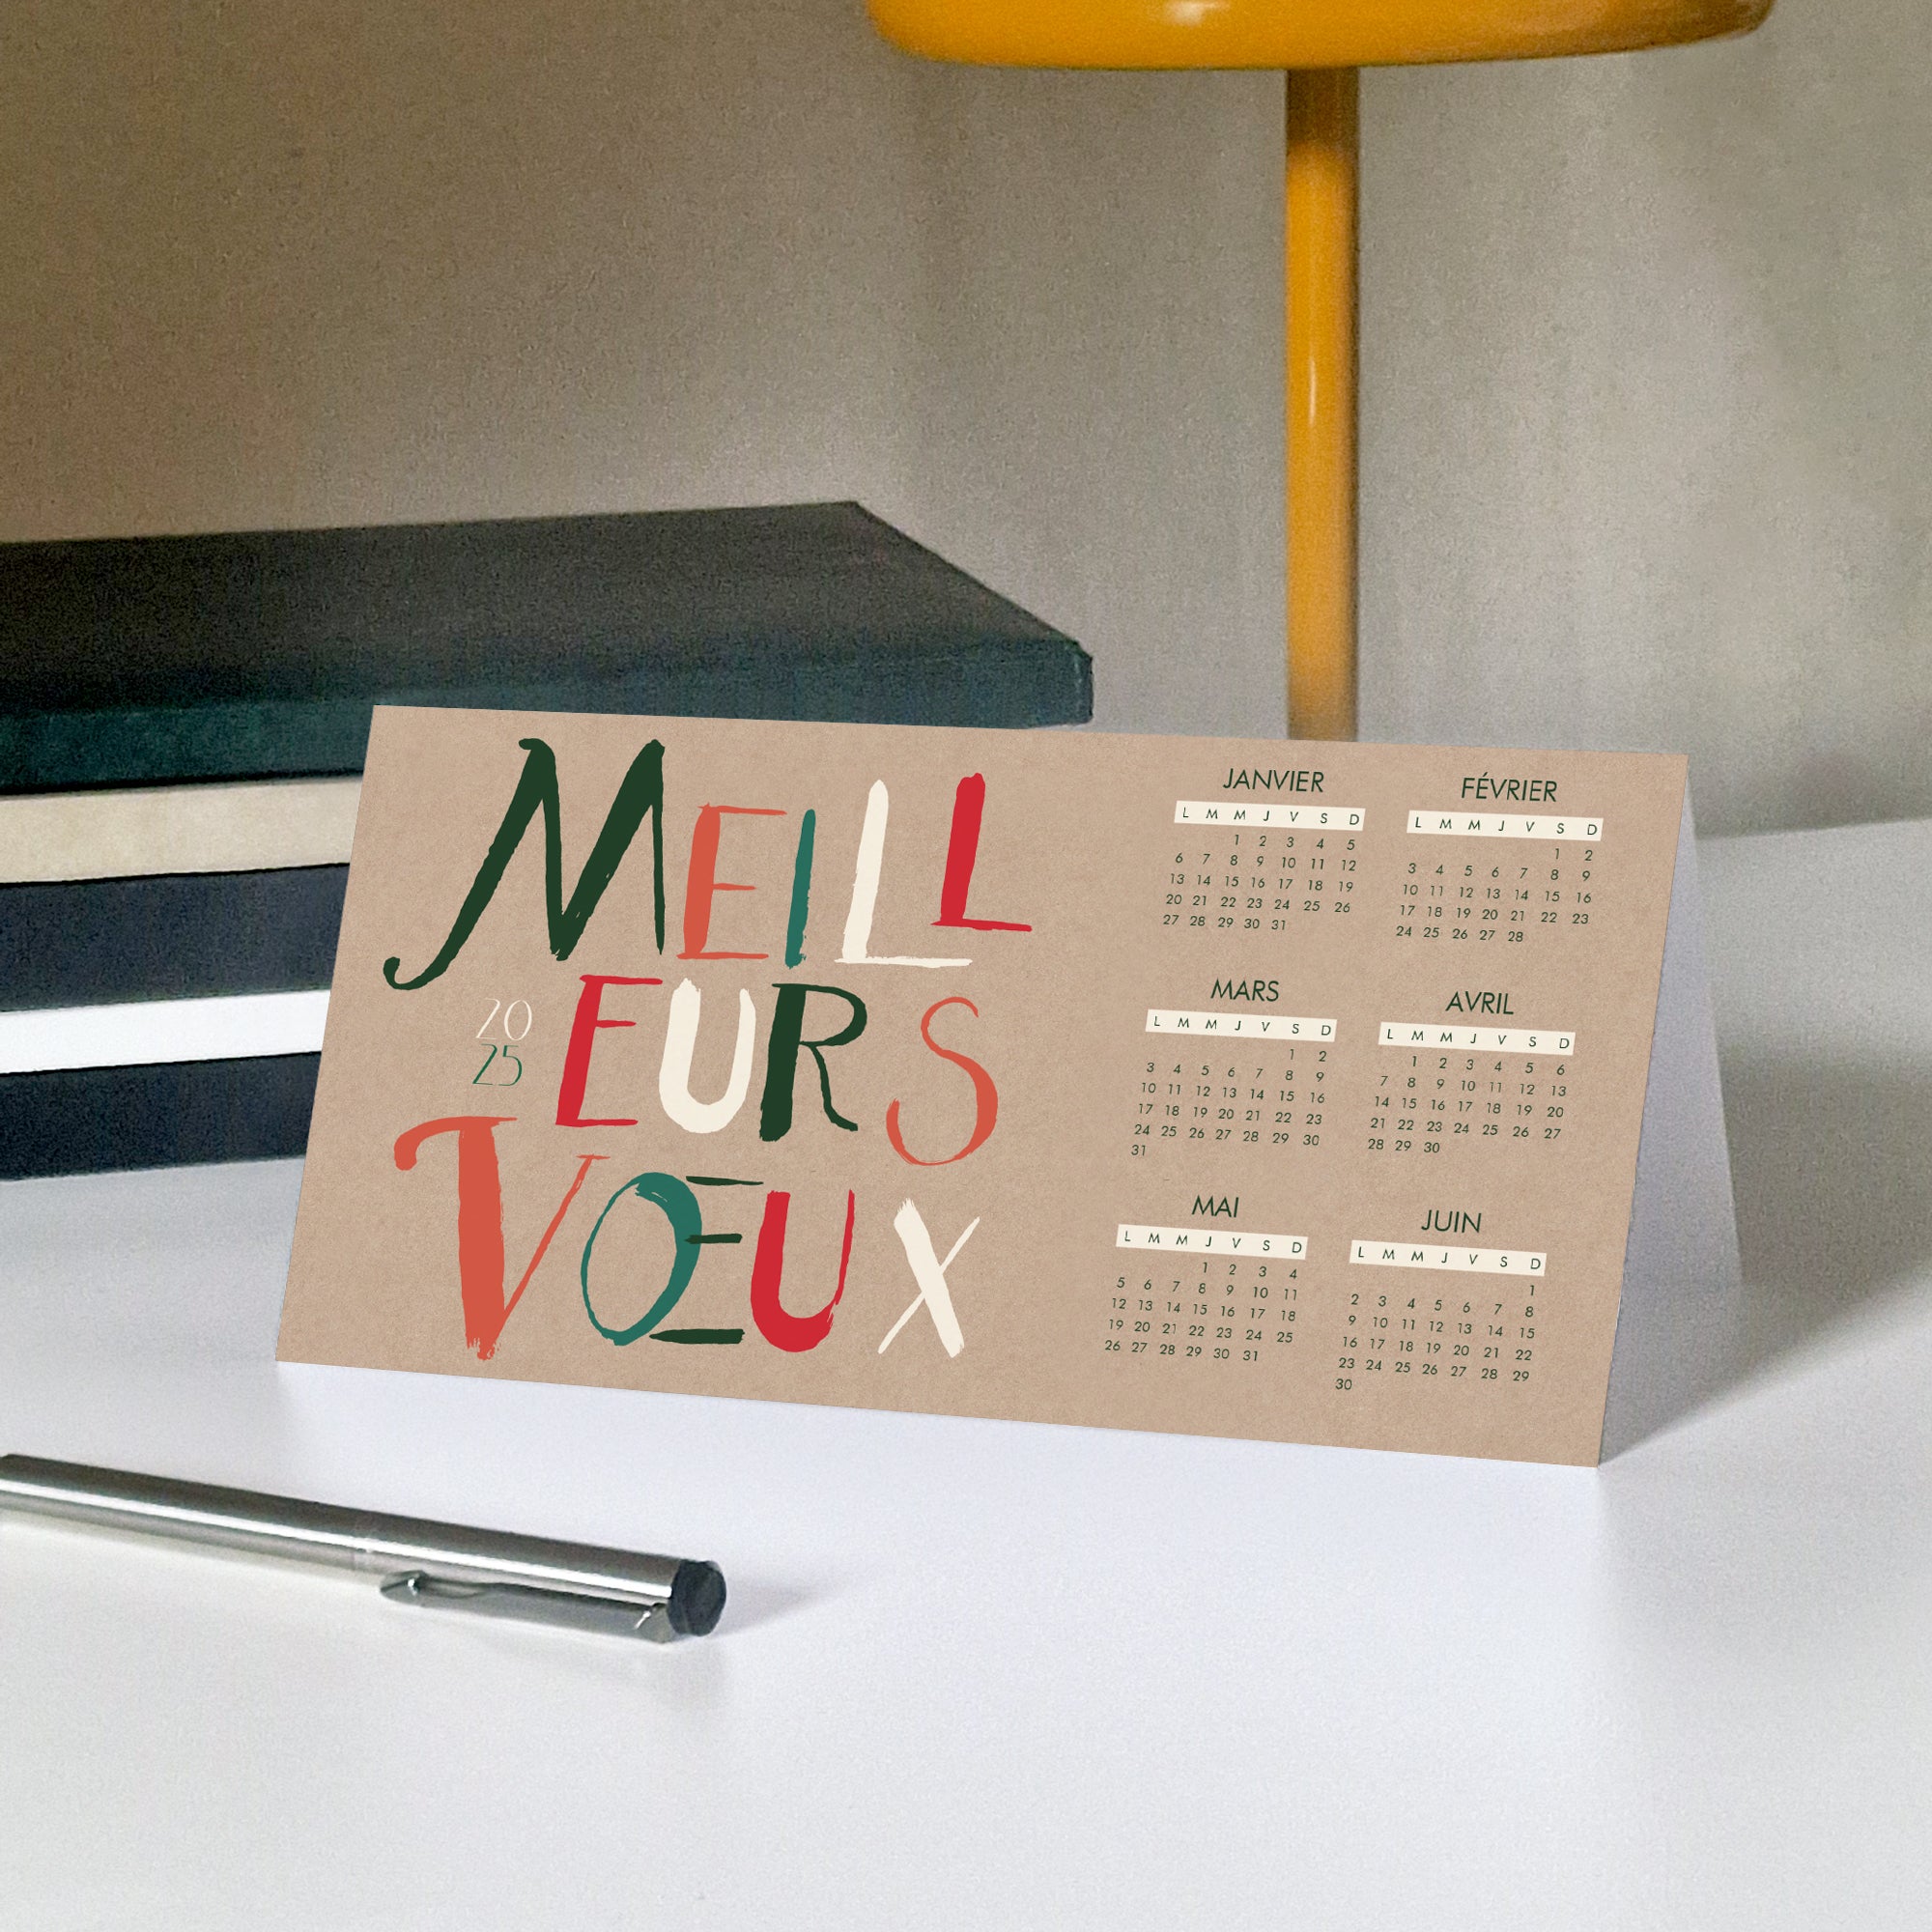 MEILL
20
25
EURS
VŒUX
JANVIER
L M M J V S D
1 2 3 4 5
6 7 8 9 10 11 12
13 14 15 16 17 18 19
20 21 22 23 24 25 26
27 28 29 30 31
FÉVRIER
L M M J V S D
1 2
3 4 5 6 7 8 9
10 11 12 13 14 15 16
17 18 19 20 21 22 23
24 25 26 27 28
MARS
L M M J V S D
1 2
3 4 5 6 7 8 9
10 11 12 13 14 15 16
17 18 19 20 21 22 23
24 25 26 27 28 29 30
31
AVRIL
L M M J V S D
1 2 3 4 5 6
7 8 9 10 11 12 13
14 15 16 17 18 19 20
21 22 23 24 25 26 27
28 29 30
MAI
L M M J V S D
1 2 3 4
5 6 7 8 9 10 11
12 13 14 15 16 17 18
19 20 21 22 23 24 25
26 27 28 29 30 31
JUIN
L M M J V S D
1
2 3 4 5 6 7 8
9 10 11 12 13 14 15
16 17 18 19 20 21 22
23 24 25 26 27 28 29
30